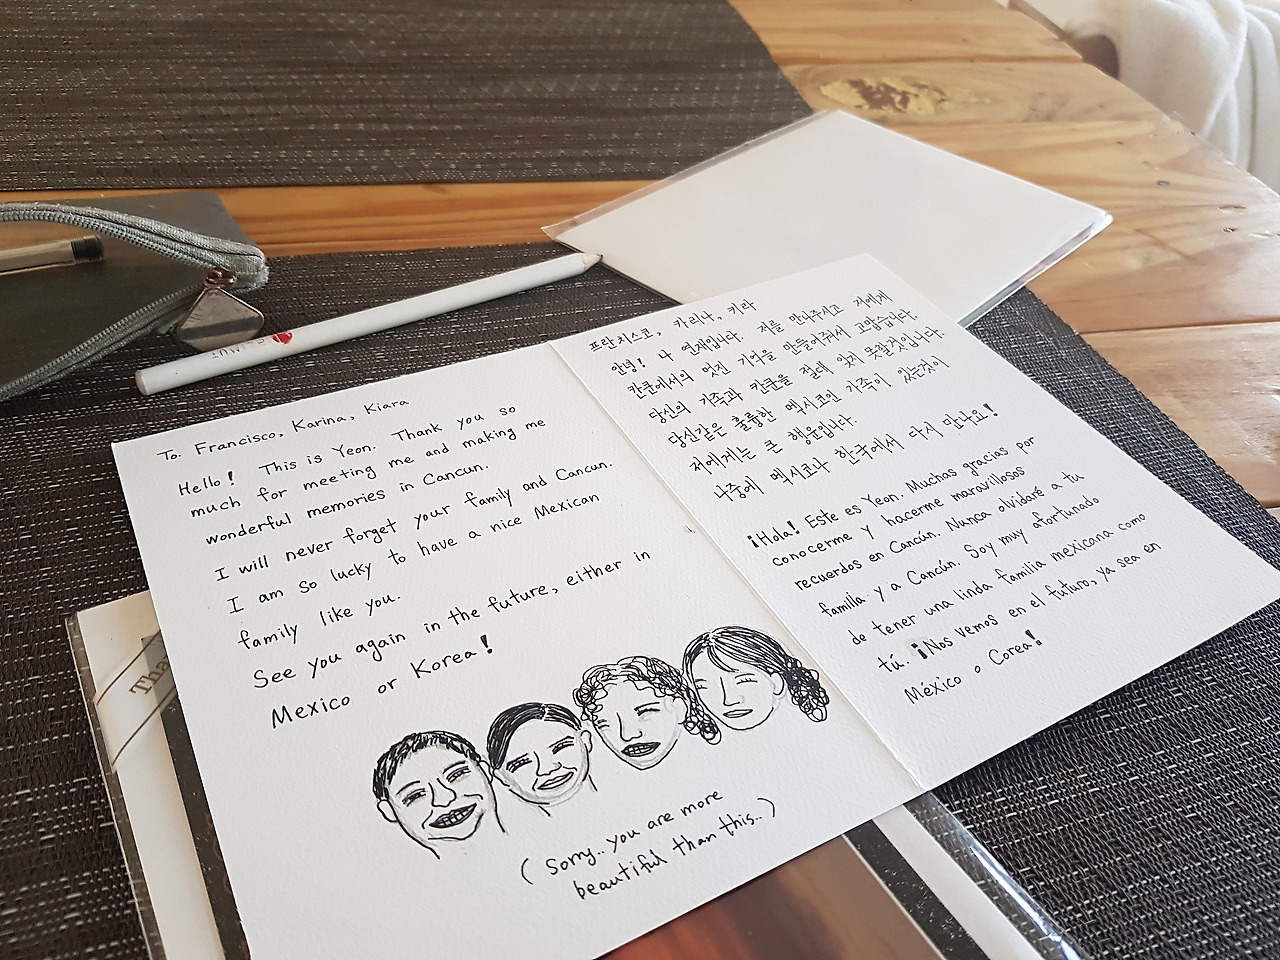 To. Francisco, Karina, Kiara
Hello! This is Yeon. Thank you so
much for meeting me and making me
wonderful memories in Cancun.
I will never forget your family and Cancun.
I am so lucky to have a nice Mexican
family like you.
See you again in the future, either in
Mexico or Korea!
(Sorry.. you are more
beautiful than this..)
프란치스코, 카리나, 키라
안녕! 나 연재입니다. 저를 만나주시고 저에게
칸쿤에서의 멋진 기억을 만들어줘서 고맙습니다.
당신의 가족과 칸쿤을 절대 잊지 못할것입니다.
당신같은 훌륭한 멕시코인 가족이 있는것이
저에게는 큰 행운입니다.
나중에 멕시코나 한국에서 다시 만나요!
¡Hola! Este es Yeon. Muchas gracias por
conocerme y hacerme maravillosos
recuerdos en Cancún. Nunca olvidaré a tu
familia y a Cancún. Soy muy afortunado
de tener una linda familia mexicana como
tú. ¡Nos vemos en el futuro, ya sea en
México o Corea!
Tha